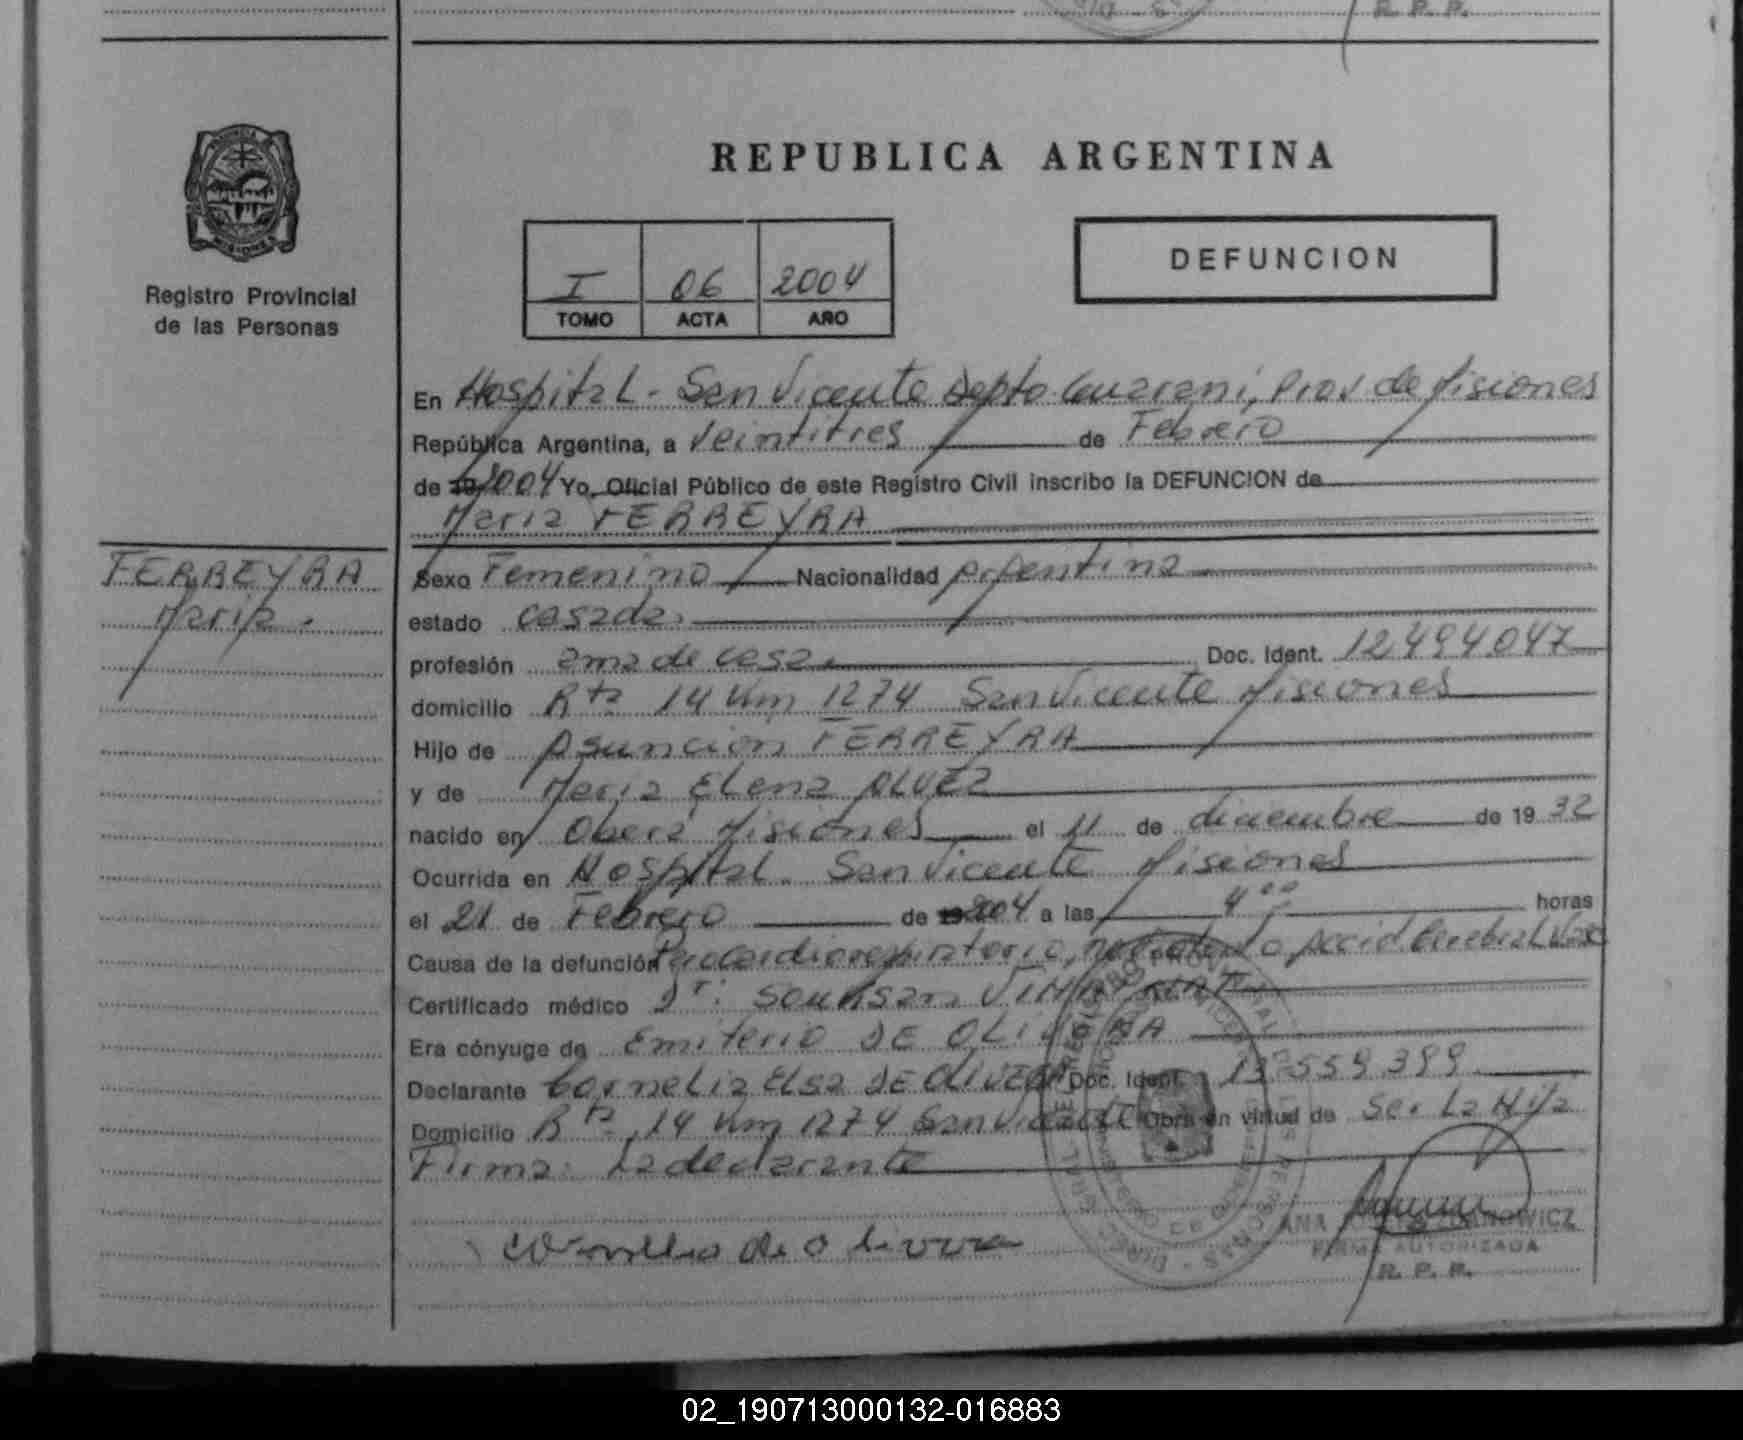 R. P. P.
REPUBLICA ARGENTINA
DEFUNCION
I 06 2004
TOMO ACTA AÑO
Registro Provincial
de las Personas
En Hospital - San Vicente Depto Guarani, Prov. de Misiones
República Argentina, a veintitres de Febrero
de 2004 Yo, Oficial Público de este Registro Civil inscribo la DEFUNCION de
Maria FERREYRA
FERREYRA
Maria.
Sexo Femenino Nacionalidad Argentina
estado casada.
profesión ama de casa. Doc. Ident. 12494047
domicilio Rta 14 Km 1274 San Vicente Misiones
Hijo de Asuncion FERREYRA
y de Maria Elena ALVEZ
nacido en Obera Misiones el 11 de diciembre de 1932
Ocurrida en Hospital. San Vicente Misiones
el 21 de Febrero de 2004 a las 4 00 horas
Causa de la defunción Paro cardiorespiratorio, no traumatico, Accid Cerebral Vasc
Certificado médico Dr:
Era cónyuge de Emiterio DE OLIVERA
Declarante Cornelia Elsa DE OLIVERA Doc. Ident. 13.559.399
Domicilio Rta 14 Km 1274 San Vicente Obra en virtud de Ser La Hija
Firma: La declarante
ANA
FIRMA AUTORIZADA
R. P. P.
02_190713000132-016883